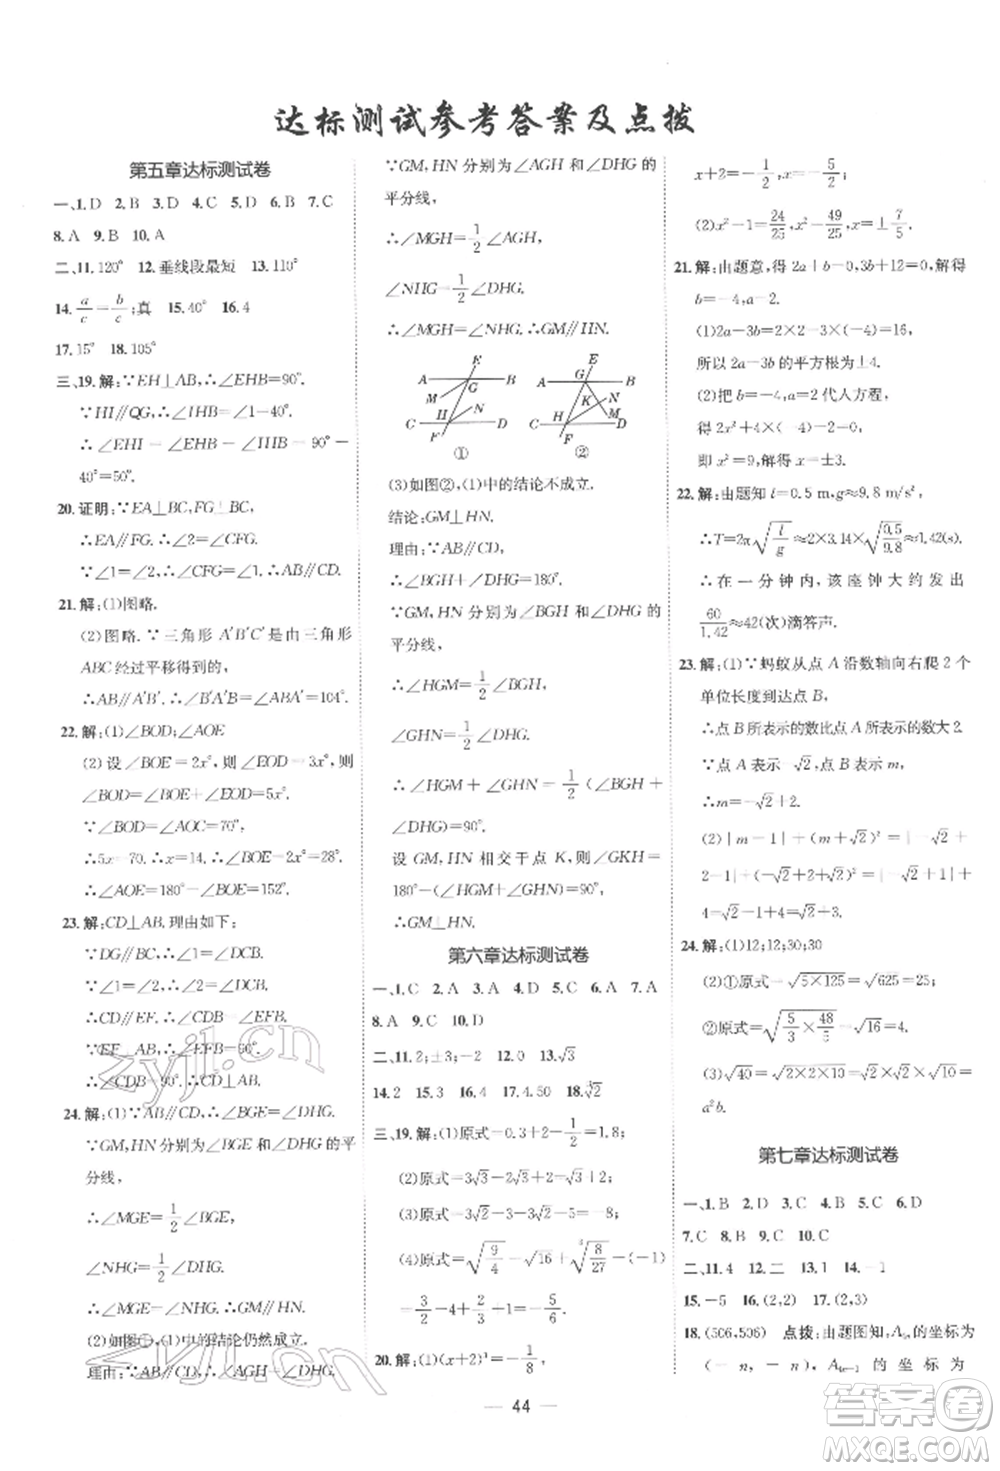 达标测试参考答案及点拨
第五章达标测试卷
一、1.D 2.B 3.D 4.C 5.D 6.B 7.C
8.A 9.B 10.A
二、11.120° 12.垂线段最短 13.110°
14. a/c = b/c ;真 15.40° 16.4
17.15° 18.105°
三、19.解:∵EH⊥AB,∴∠EHB=90°.
∵HI∥QG,∴∠IHB=∠1=40°.
∴∠EHI=∠EHB-∠IHB=90°-
40°=50°.
20.证明:∵EA⊥BC,FG⊥BC,
∴EA∥FG.∴∠2=∠CFG.
∵∠1=∠2,∴∠CFG=∠1.
21.解:(1)图略.
(2)图略.∵三角形A′B′C′是由三角形
ABC经过平移得到的,
∴AB∥A′B′.∴∠B′A′A+∠BAA′=180°.
22.解:(1)∠BOD;∠AOE
(2)设∠BOE=2x°,∠EOD=3x°,则
∠BOD=∠BOE+∠EOD=5x°.
∵∠BOD=∠AOC=70°,
∴5x=70.∴x=14.∴∠BOE=2x°=28°.
∴∠AOE=180°-∠BOE=152°.
23.解:CD⊥AB.理由如下:
∵DG∥BC,∴∠1=∠DCB.
∵∠1=∠2,∴∠2=∠DCB.
∴CD∥EF.∴∠CDB=∠EFB.
∵EF⊥AB,∴∠EFB=90°.
∴∠CDB=90°.∴CD⊥AB.
24.解:(1)∵AB∥CD,∴∠BGE=∠DHG.
∵GM,HN分别为∠BGE和∠DHG的平
分线,
∴∠MGE=1/2∠BGE,
∠NHG=1/2∠DHG.
∴∠MGE=∠NHG.∴GM∥HN.
(2)如图①,(1)中的结论仍然成立.
理由:∵AB∥CD,∴∠AGH=∠DHG.
∵GM,HN分别为∠AGH和∠DHG的
平分线,
∴∠MGH=1/2∠AGH,
∠NHG=1/2∠DHG.
∴∠MGH=∠NHG.∴GM∥HN.
E A G B M H N C D F ①
E A G B K H N C M D F ②
(3)如图②,(1)中的结论不成立.
结论:GM⊥HN.
理由:∵AB∥CD,
∴∠BGH+∠DHG=180°.
∵GM,HN分别为∠BGH和∠DHG的
平分线,
∴∠HGM=1/2∠BGH,
∠GHN=1/2∠DHG.
∴∠HGM+∠GHN=1/2(∠BGH+
∠DHG)=90°.
设GM,HN相交于点K,则∠GKH=
180°-(∠HGM+∠GHN)=90°.
∴GM⊥HN.
第六章达标测试卷
一、1.C 2.A 3.A 4.D 5.C 6.A 7.A
8.A 9.C 10.D
二、11.2;±3;-2 12.0 13.√3
14.2 15.3 16.4 17.4.50 18.∛2
三、19.解:(1)原式=0.3+2-1/2=1.8;
(2)原式=3√3-√3+√2=2√3+√2;
(3)原式=√3-√2+2-√3+√2=2;
(4)原式=√(9/4)-√16+∛(8/27)-(-1)
=3/2-4+2/3+1=-5/6.
20.解:(1)(x+2)³=-1/8,
x+2=-1/2,x=-5/2;
(2)x²-1=24/25,x²=49/25,x=±7/5.
21.解:由题意,得2a+b=0,3b+12=0,解得
b=-4,a=2.
(1)2a-3b=2×2-3×(-4)=16,
所以2a-3b的平方根为±4.
(2)把b=-4,a=2代入方程,
得2x²+4×(-4)-2=0,
即x²=9,解得x=±3.
22.解:由题知l=0.5 m,g≈9.8 m/s²,
∴T=2π√(l/g)≈2×3.14×√(0.5/9.8)≈1.42(s).
∴在一分钟内,该座钟大约发出
60/1.42≈42(次)滴答声.
23.解:(1)∵蚂蚁从点A沿数轴向右爬2个
单位长度到达点B,
∴点B所表示的数比点A所表示的数大2.
∵点A表示-√2,点B表示m,
∴m=-√2+2.
(2)|m-1|+(m+√2)²=|-√2+
2-1|+(-√2+2+√2)²=|1-√2|+4=
√2-1+4=√2+3.
24.解:(1)12;12;30;30
(2)①原式=√(5×125)=√625=25;
②原式=√(5/3×48/5)=√16=4;
(3)√40=√(2×2×10)=√2×√2×√10=
a²b.
第七章达标测试卷
一、1.B 2.D 3.C 4.B 5.C 6.D
7.C 8.B 9.C 10.C
二、11.4 12.二 13.1 14.-1
15.-5 16.(2,2) 17.(2,3)
18.(506,506) 点拨:由题图知,A₄ₙ的坐标为
(-n,-n),A₄ₙ₋₁的坐标为
44
zyjl.cn
zyjl.cn
答案圈
MXQE.COM